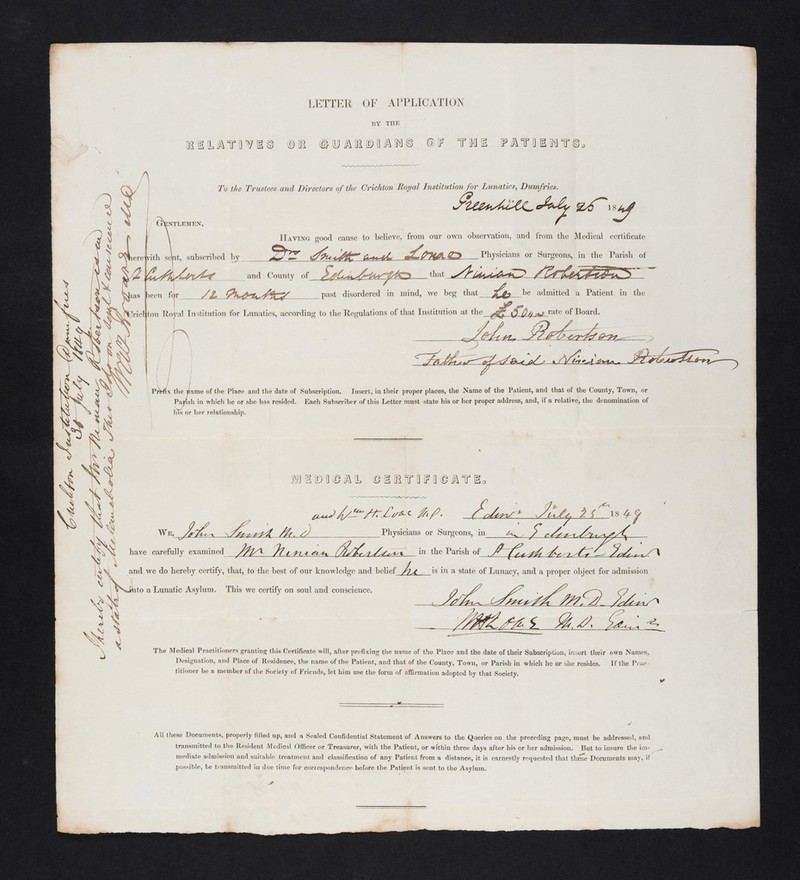 LETTER OF APPLICATION
BY THE
RELATIVES OR GUARDIANS OF THE PATIENTS.
To the Trustees and Directors of the Crichton Royal Institution for Lunatics, Dumfries.
Greenhill July 25 1849
GENTLEMEN,
HAVING good cause to believe, from our own observation, and from the Medical certificate
herewith sent, subscribed by Drs Smith and Lowe Physicians or Surgeons, in the Parish of
St Cuthberts and County of Edinburgh that Ninian Robertson
has been for 12 Months past disordered in mind, we beg that he be admitted a Patient in the
Crichton Royal Institution for Lunatics, according to the Regulations of that Institution at the £50 rate of Board.
John Robertson
Father of said Ninian Robertson
Prefix the name of the Place and the date of Subscription. Insert, in their proper places, the Name of the Patient, and that of the County, Town, or
Parish in which he or she has resided. Each Subscriber of this Letter must state his or her proper address, and, if a relative, the denomination of
his or her relationship.
MEDICAL CERTIFICATE.
Edinr July 25th 1849
and Wm H. Lowe M.D.
WE, John Smith M.D Physicians or Surgeons, in in Edenburgh
have carefully examined Mr Ninian Robertson in the Parish of St Cuthberts Edinr
and we do hereby certify, that, to the best of our knowledge and belief he is in a state of Lunacy, and a proper object for admission
into a Lunatic Asylum. This we certify on soul and conscience.
John Smith M.D. Edinr
WH Lowe M.D. Edinr
The Medical Practitioners granting this Certificate will, after prefixing the name of the Place and the date of their Subscription, insert their own Names,
Designation, and Place of Residence, the name of the Patient, and that of the County, Town, or Parish in which he or she resides. If the Prac-
titioner be a member of the Society of Friends, let him use the form of affirmation adopted by that Society.
All these Documents, properly filled up, and a Sealed Confidential Statement of Answers to the Queries on the preceding page, must be addressed, and
transmitted to the Resident Medical Officer or Treasurer, with the Patient, or within three days after his or her admission. But to insure the im-
mediate admission and suitable treatment and classification of any Patient from a distance, it is earnestly requested that these Documents may, if
possible, be transmitted in due time for correspondence before the Patient is sent to the Asylum.
Crichton Institution Dumfries
30 July 1849
I hereby certify that Mr Ninian Robertson is in
a state of Melancholia This I do on soul & conscience